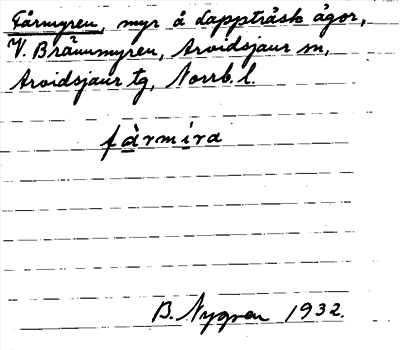 Fårmyren, myr å Lappträsk ägor,
V. Brännmyren, Arvidsjaur sn,
Arvidsjaur tg, Norrb. l.
fårmira
B. Nygren 1932.